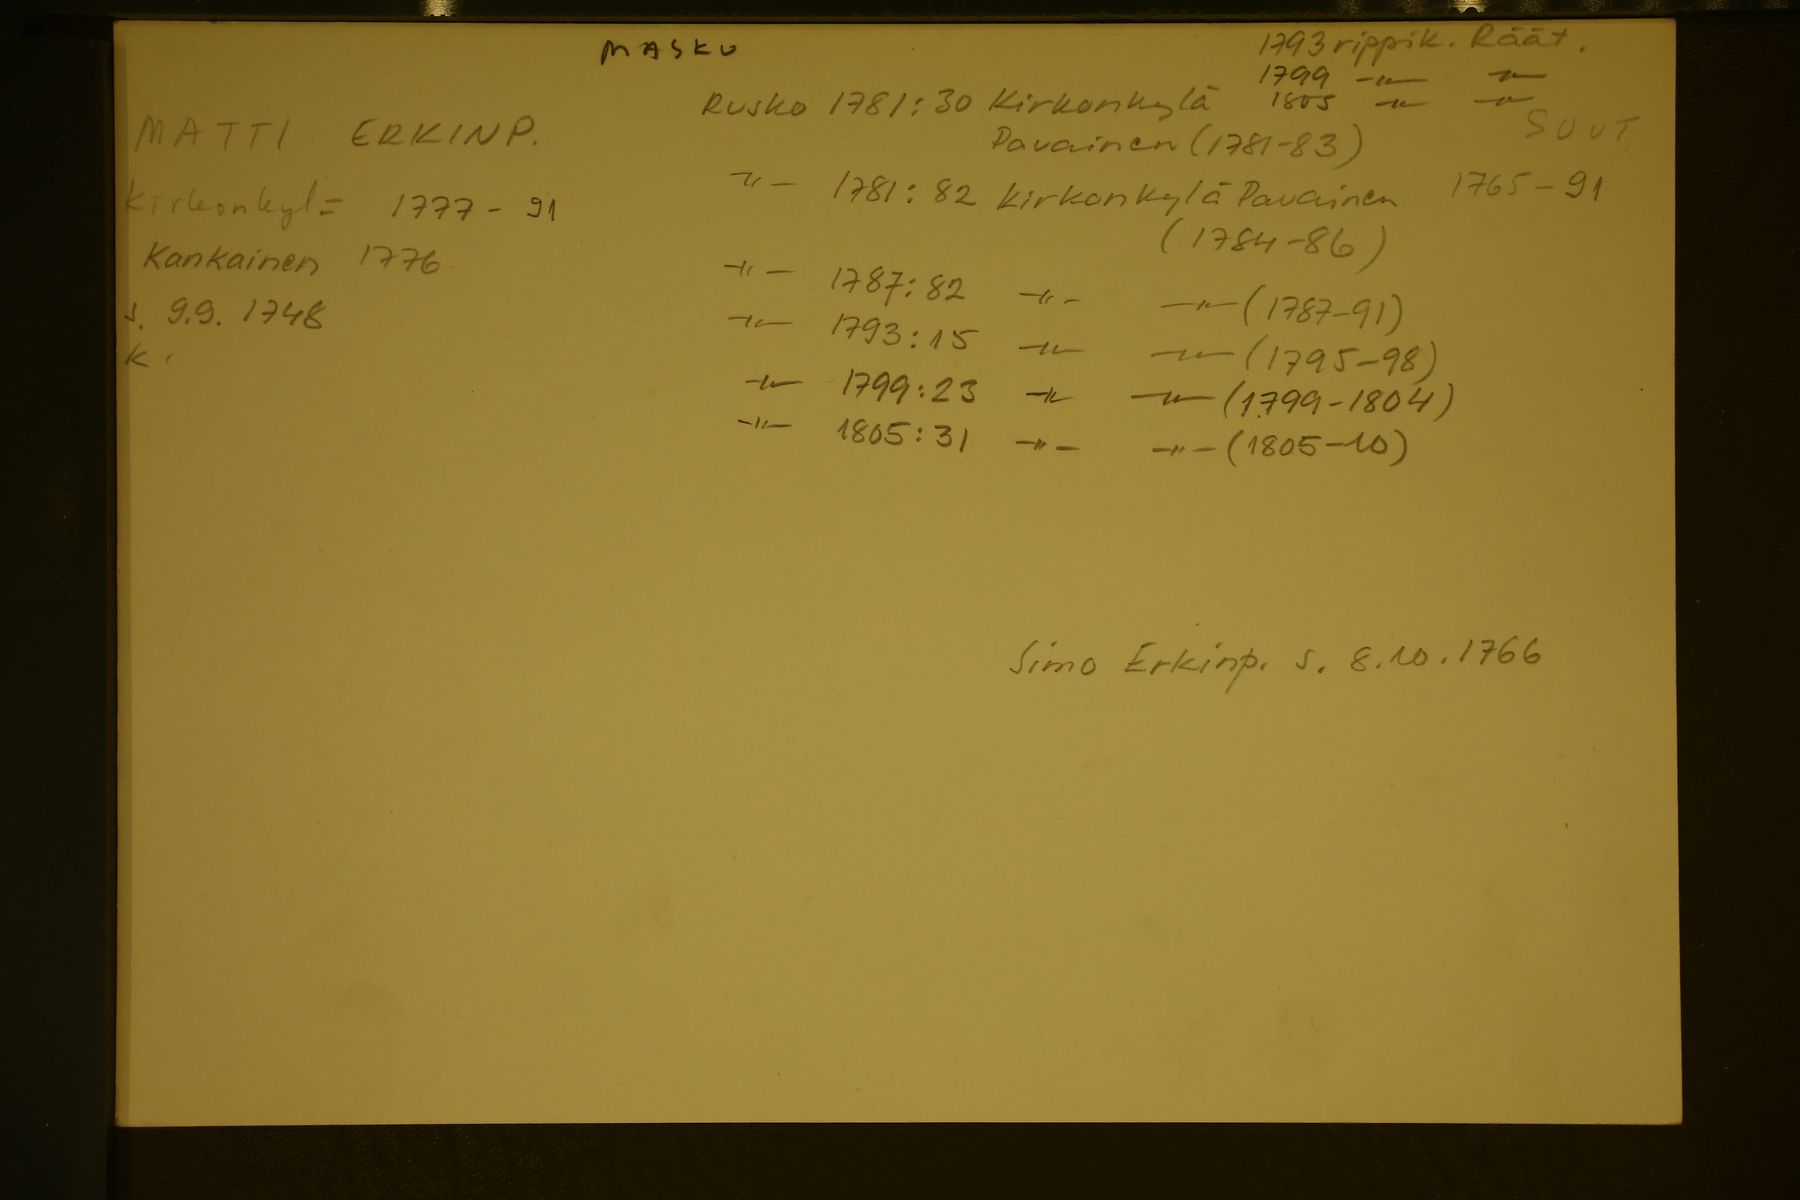 MASKU
1793 rippik. Räät.
1799 -"- -"-
1805 -"- -"-
SUUT.
MATTI ERKINP.
Kirkonkyl= 1777-91
Kankainen 1776
s. 9.9. 1748
k.
Rusko 1781:30 Kirkonkylä
Pavainen (1781-83)
-"- 1781:82 Kirkonkylä Pavainen 1765-91
(1784-86)
-"- 1787:82 -"- -"- (1787-91)
-"- 1793:15 -"- -"- (1795-98)
-"- 1799:23 -"- -"- (1799-1804)
-"- 1805:31 -"- -"- (1805-10)
Simo Erkinp. s. 8.10.1766